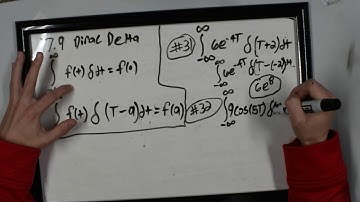 7.9 Dirac Delta
∫ f(t) δ dt = f(0)
∞ ∫ f(t) δ (T-a) dt = f(a)
#31 ∞ ∫ -∞ 6e^-4T δ (T+2) dt
∞ ∫ -∞ 6e^-4T δ (T-(-2)) dt
6e^8
#32 ∞ ∫ -∞ 9cos(5T) δ